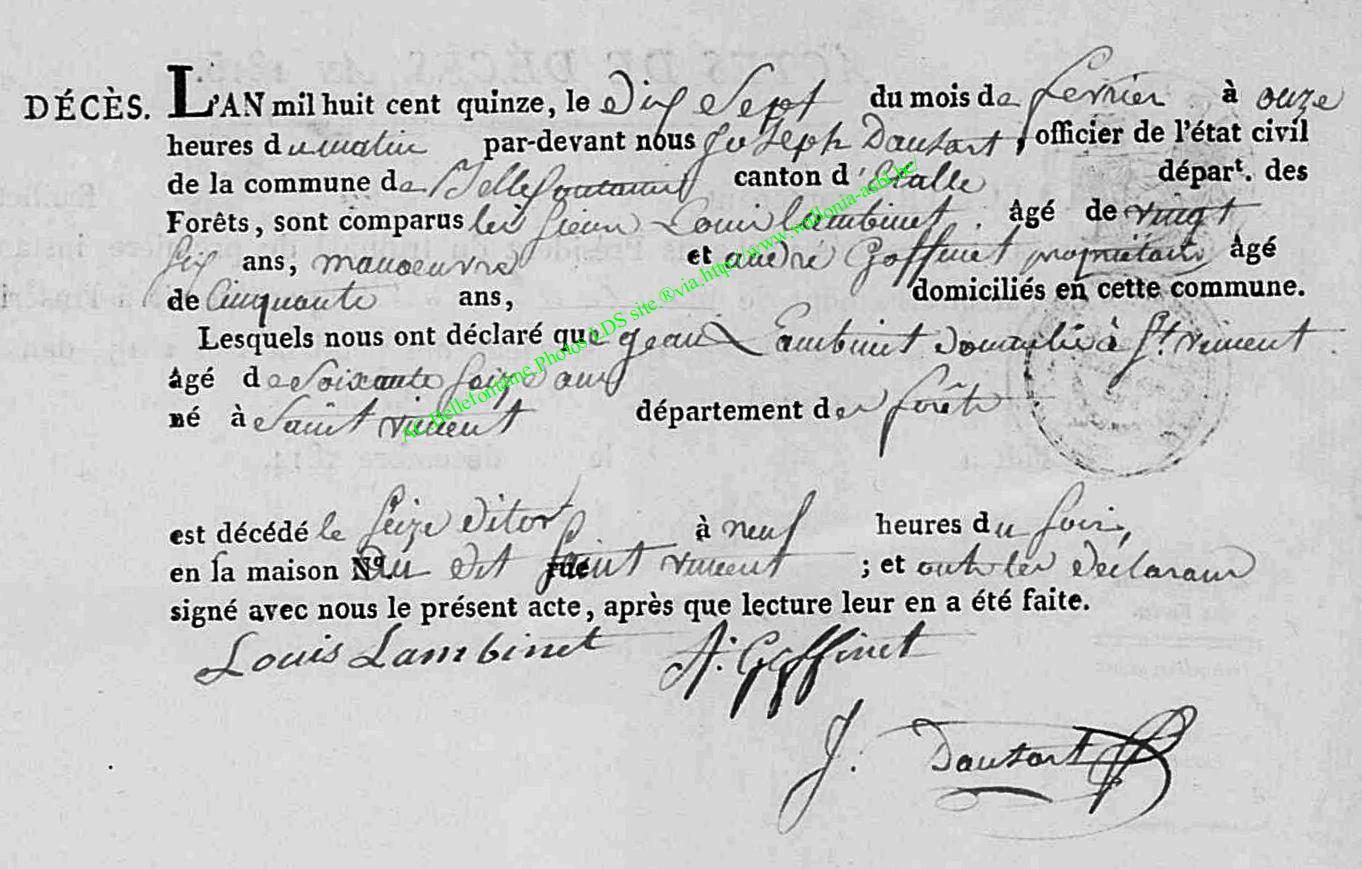 DÉCÈS. L'AN mil huit cent quinze, le Dix Sept du mois de fevrier à onze
heures du matin par-devant nous Joseph Dautart officier de l'état civil
de la commune de Bellefontaine canton d'Etalle départ. des
Forêts, sont comparus les sieurs Louis Lambinet âgé de vingt
six ans, manoeuvre et andré Goffinet propriétaire âgé
de Cinquante ans, domiciliés en cette commune.
Lesquels nous ont déclaré que jean Lambinet domicilié à St. vincent
âgé de Soixante seize ans
né à Saint vincent département des forêts
est décédé le seize ditot à neuf heures du soir,
en la maison No. au dit saint vincent ; et ont les declarans
signé avec nous le présent acte, après que lecture leur en a été faite.
Louis Lambinet A. Goffinet
J. Dautart
AC Bellefontaine Photos LDS site ®via http://www.wallonia-asbl.be/